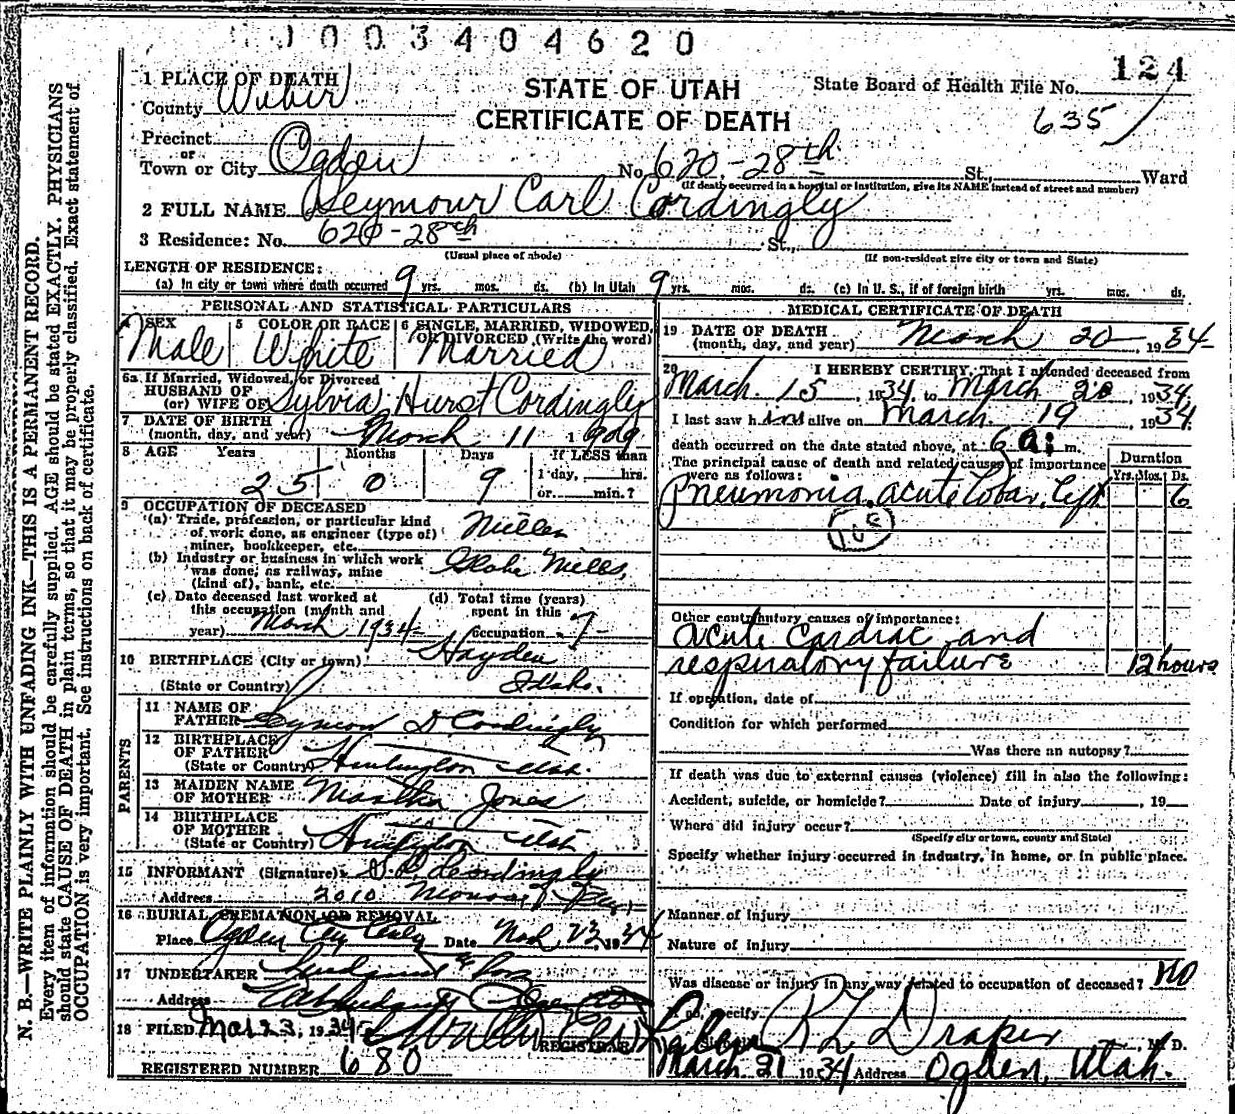 1003404620
124
1 PLACE OF DEATH
STATE OF UTAH
State Board of Health File No.
County Weber
CERTIFICATE OF DEATH
635
Precinct
or
Town or City Ogden No. 620-28th St., Ward
(If death occurred in a hospital or institution, give its NAME instead of street and number)
2 FULL NAME Seymour Carl Cordingly
3 Residence: No. 620-28th St.,
(Usual place of abode) (If non-resident give city or town and State)
LENGTH OF RESIDENCE:
(a) In city or town where death occurred 9 yrs. mos. ds. (b) In Utah 9 yrs. mos. ds. (c) In U. S., if of foreign birth yrs. mos. ds.
PERSONAL AND STATISTICAL PARTICULARS
4 SEX 5 COLOR OR RACE 6 SINGLE, MARRIED, WIDOWED,
OR DIVORCED (Write the word)
Male White Married
6a If Married, Widowed, or Divorced
HUSBAND OF
(or) WIFE OF Sylvia Hurst Cordingly
7 DATE OF BIRTH
(month, day, and year) March 11 1909
8 AGE Years Months Days If LESS than
1 day, hrs.
25 0 9 or min.?
9 OCCUPATION OF DECEASED
(a) Trade, profession, or particular kind
of work done, as engineer (type of) Miller
miner, bookkeeper, etc.
(b) Industry or business in which work
was done; as railway, mine Globe Mills,
(kind of), bank, etc.
(c) Date deceased last worked at (d) Total time (years)
this occupation (month and spent in this
year) March 1934 occupation 7
10 BIRTHPLACE (City or town) Hayden
(State or Country) Idaho.
PARENTS
11 NAME OF
FATHER Seymour D Cordingly
12 BIRTHPLACE
OF FATHER
(State or Country) Huntington Utah.
13 MAIDEN NAME
OF MOTHER Martha Jones
14 BIRTHPLACE
OF MOTHER
(State or Country) Huntington Utah
15 INFORMANT (Signature) Cordingly
Address 2010 Monroe
16 BURIAL, CREMATION OR REMOVAL
Place Ogden City Date Mch 23 1934
17 UNDERTAKER & Sons
Address
18 FILED Mar 23, 1934
REGISTRAR
REGISTERED NUMBER 680
MEDICAL CERTIFICATE OF DEATH
19 DATE OF DEATH
(month, day, and year) March 20, 1934
20 I HEREBY CERTIFY, That I attended deceased from
March 15, 1934 to March 20, 1934
I last saw him alive on March 19 1934
death occurred on the date stated above, at 6 a. m.
The principal cause of death and related causes of importance
were as follows:
Duration
Yrs. Mos. Ds.
Pneumonia, acute lobar, left 6
108
Other contributory causes of importance:
acute cardiac and
respiratory failure 12 hours
If operation, date of
Condition for which performed
Was there an autopsy?
If death was due to external causes (violence) fill in also the following:
Accident, suicide, or homicide? Date of injury , 19
Where did injury occur?
(Specify city or town, county and State)
Specify whether injury occurred in industry, in home, or in public place.
Manner of injury
Nature of injury
Was disease or injury in any way related to occupation of deceased? no
If so, specify
Draper, M. D.
March 21 1934 Address Ogden, Utah.
N. B.—WRITE PLAINLY WITH UNFADING INK—THIS IS A PERMANENT RECORD.
Every item of information should be carefully supplied. AGE should be stated EXACTLY. PHYSICIANS
should state CAUSE OF DEATH in plain terms, so that it may be properly classified. Exact statement of
OCCUPATION is very important. See instructions on back of certificate.